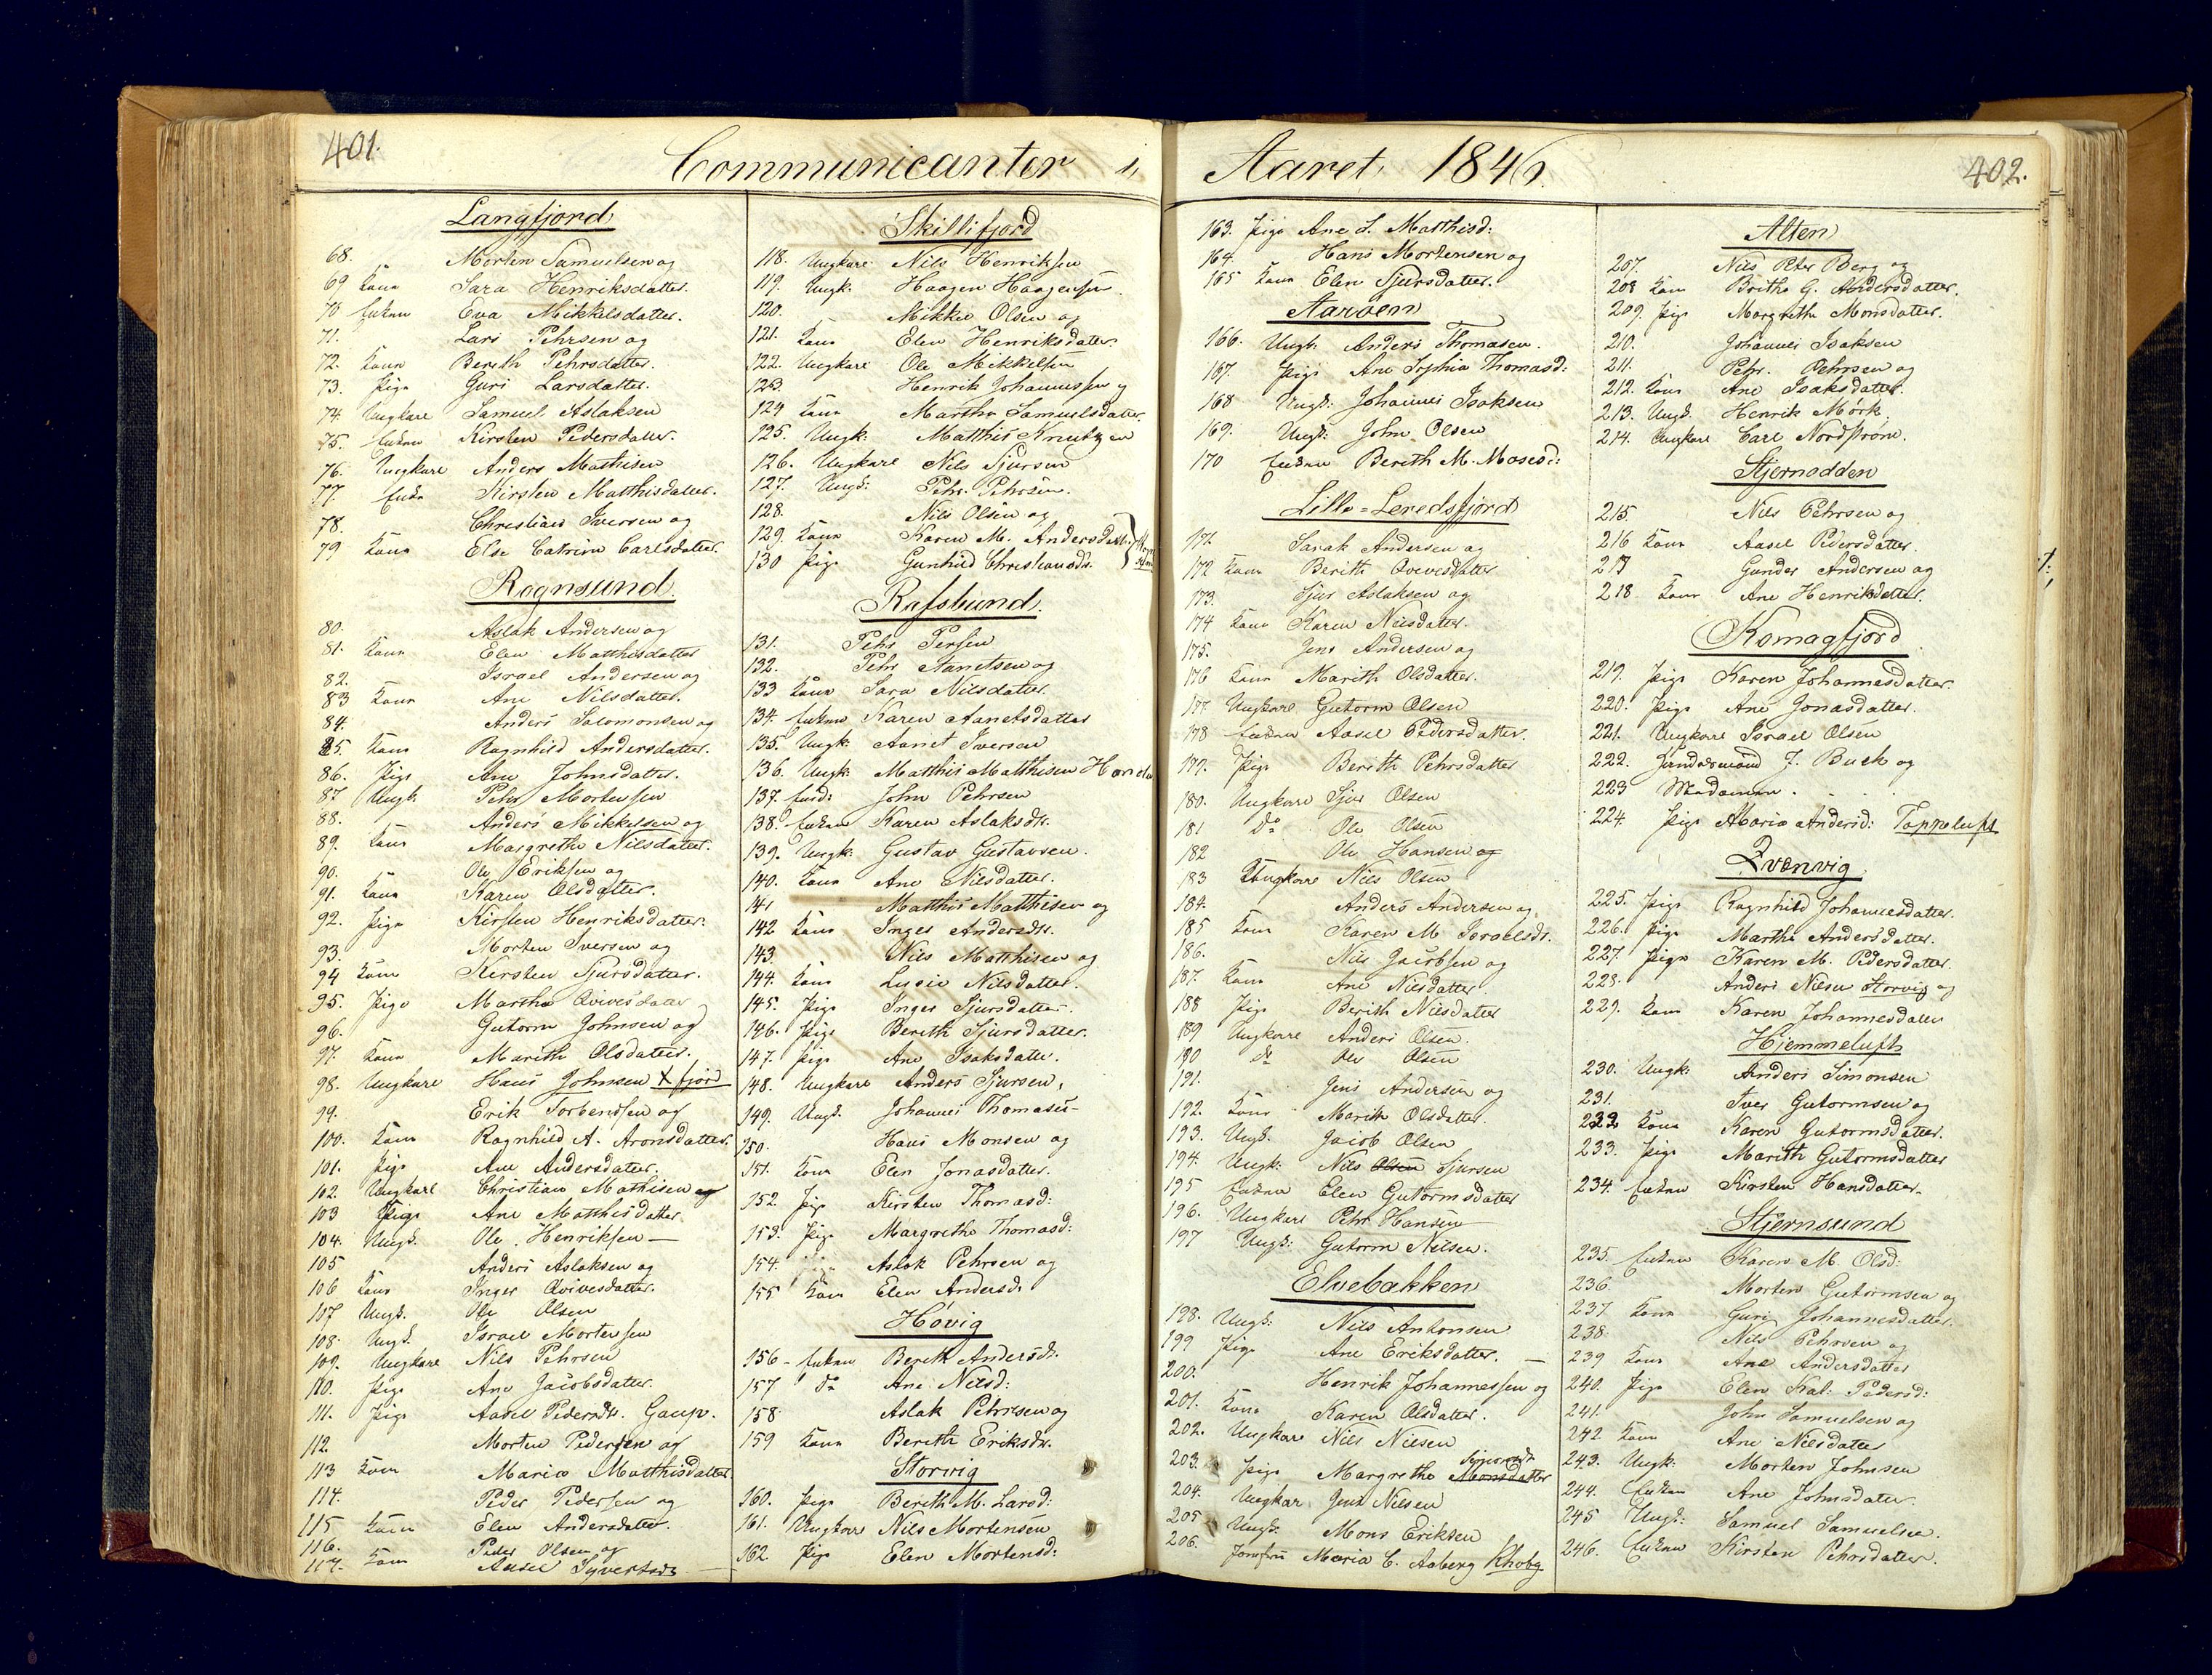 401.
Communicanter i
Langfjord
68. Morten Samuelsen og
69 Kone Sara Henriksdatter.
70 Enken Eva Mikkelsdatter.
71. Lars Pehrsen og
72. Kone Berith Pehrsdatter.
73. Pige Guri Larsdatter.
74 Ungkarl Samuel Aslaksen
75. Enken Kirsten Pedersdatter.
76. Ungkarl Anders Mathisen
77 Enke Kirsten Matthisdatter.
78. Christian Iversen og
79 Kone Else Catrine Carlsdatter.
Rognsund.
80. Aslak Andersen og
81. Kone Elen Matthisdatter
82. Israel Andersen og
83 Kone Ane Nilsdatter.
84. Anders Salomonsen og
85 Kone Ragnhild Andersdatter.
86. Pige Ane Johnsdatter.
87 Ungk. Pehr Mortensen
88. Anders Mikkelsen og
89. Kone Margrethe Nilsdatter.
90. Ole Eriksen og
91. Kone Karen Olsdatter.
92. Pige Kirsten Henriksdatter.
93. Morten Iversen og
94 Kone Kirsten Sjursdatter.
95. Pige Marthe Qvivesdatter
96. Gutorm Johnsen og
97. Kone Marith Olsdatter.
98. Ungkarl Hans Johnsen X fjord
99. Erik Torbensen og
100. Kone Ragnhild A. Aronsdatter.
101. Pige Ane Andersdatter.
102. Ungkarl Christian Mathisen og
103 Pige Ane Matthisdatter
104. Ungk. Ole Henriksen —
105 Anders Aslaksen og
106 Kone Inger Qvivesdatter.
107 Ungk. Ole Olsen
108. Ungk. Israel Mortensen
109. Ungkarl Nils Pehrsen
110. Pige Ane Jacobsdatter.
111. Pige Aasel Pedersdtr. Gaup.
112. Morten Pedersen og
113 Kone Maria Matthisdatter.
114. Peder Pedersen og
115 Kone Elen Andersdatter.
116. Peder Olsen og
117. Kone Aasel Syversdtr
Skillifjord
118. Ungkarl Nils Henriksen
119. Ungk: Haagen Haagensen
120. Mikkel Olsen og
121. Kone Elen Henriksdatter.
122. Ungkarl Ole Mikkelsen
123. Henrik Johannessen og
124 Kone Marthe Samuelsdatter.
125. Ungk: Matthis Knutzen
126. Ungkarl Nils Sjursen
127. Ungk: Pehr Pehrsen.
128. Nils Olsen og
129. Kone Karen M. Andersdatt.
130 Pige Gunhild Christiansdtr.
Rafsbund.
131. Pehr Persen
132. Pehr Aanetsen og
133 Kone Sara Nilsdatter.
134. Enken Karen Aanetsdatter
135. Ungk: Aanet Iversen
136. Ungk: Matthis Matthisen
137. John Pehrsen
138. Enken Karen Aslaksdtr.
139. Ungk: Gustav Gustavsen.
140. Kone Ane Nilsdatter.
141 Matthis Matthisen og
142 Kone Inger Andersdtr.
143. Nils Matthisen og
144. Kone Lusie Nilsdatter.
145. Pige Inger Sjursdatter.
146. Pige Berith Sjursdatter.
147. Pige Ane Isaksdatter.
148. Ungkarl Anders Sjursen.
149. Ungk. Johannes Thomasen-
150. Hans Monsen og
151. Kone Elen Jonasdatter.
152. Pige Kirsten Thomasd:
153. Pige Margrethe Thomasd:
154. Aslak Pehrsen og
155 Kone Elen Andersd.
Høvig
156- Enken Berith Andersdtr.
157 do Ane Nilsd:
158 Aslak Pehrsen og
159 Kone Berith Eriksdtr.
Storvig
160. Pige Berith M. Larsd:
161. Ungkarl Nils Mortensen
162. Pige Elen Mortensd:
Aaret 1846.
402.
163. Pige Ane L. Matthisd:
164. Hans Mortensen og
165 Kone Elen Sjursdatter.
Aarøen
166. Ungk. Anders Thomasen.
167. Pige Ane Sophia Thomasd:
168 Ungk: Johannes Isaksen
169. Ungk: John Olsen
170 Enken Berith M. Mosesd:
Lille=Leredsfjord
171. Sarak Andersen og
172 Kone Berith Qvivesdatter
173. Sjur Aslaksen og
174 Kone Karen Nilsdatter.
175. Jens Andersen og
176 Kone Marith Olsdatter.
177. Ungkarl Gutorm Olsen
178 Enken Aasel Pedersdatter.
179. Pige Berith Pehrsdatter
180. Ungkarl Sjur Olsen
181 do Ole Olsen
182 Ole Hansen og
183 Ungkarl Nils Olsen
184. Anders Andersen og
185 Kone Karen M Israelsdr.
186. Nils Jacobsen og
187. Kone Ane Nilsdatter
188 Pige Berith Nilsdatter
189 Ungkarl Anders Olsen.
190 do Ole Olsen
191. Jens Andersen og
192. Kone Marith Olsdatter.
193. Ungk. Jacob Olsen
194. Ungk: Nils Olsen Sjursen
195 Enken Elen Gutormsdatter
196. Ungkarl Pehr Hansen
197 Ungk: Gutorm Nilsen.
Elvebakken
198. Ungk: Nils Antonsen
199 Pige Ane Eriksdatter. —
200. Henrik Johannessen og
201. Kone Karen Olsdatter.
202. Ungkarl Nils Nilsen
203. Pige Margrethe Monsdatter
204. Ungkarl Jens Nilsen
205 Ungk: Mons Eriksen
206. Jomfru Maria C. Aaberg
Alten
207. Nils Peter Berg og
208 Kone Brithe G. Andersdatter.
209. Pige Margrethe Monsdatter.
210. Johannes Isaksen
211. Pehr. Pehrsen og
212. Kone Ane Isaksdatter.
213. Ungk. Henrik Mørk.
214. Ungkarl Carl Nordstrøm.
Stjernodden
215. Nils Pehrsen og
216 Kone Aasel Pedersdatter.
217 Gunder Andersen og
218 Kone Ane Henriksdatter.
Komagfjord
219. Pige Karen Johannesdatter.
220. Pige Ane Jonasdatter.
221. Ungkarl Israel Olsen
222. J. Buck og
223 Madamen . . .
224. Pige Maria Andersd: Toppeluft
Qvænvig
225. Pige Ragnhild Johannesdatter.
226. Pige Marthe Andersdatter.
227. Pige Karen M. Pedersdatter.
228. Anders Nilsen Storvig og
229. Kone Karen Johannesdatter
Hjemmeluft
230. Ungk: Anders Simonsen
231. Iver Gutormsen og
232 Kone Karen Gutormsdatter.
233. Pige Marith Gutormsdatter
234. Enken Kirsten Hansdatter.
Stjernsund
235. Enken Karen M. Olsd:
236. Morten Gutormsen og
237 Kone Guri Johannesdatter.
238. Nils Pehrsen og
239 Kone Ane Andersdatter
240. Pige Elen Kat: Pedersd:
241. John Samuelsen og
242 Kone Ane Nilsdatter
243. Ungk: Morten Johnsen
244. Enken Ane Johnsdatter.
245 Ungk: Samuel Samuelsen.
246. Enken Kirsten Pehrsdatter.